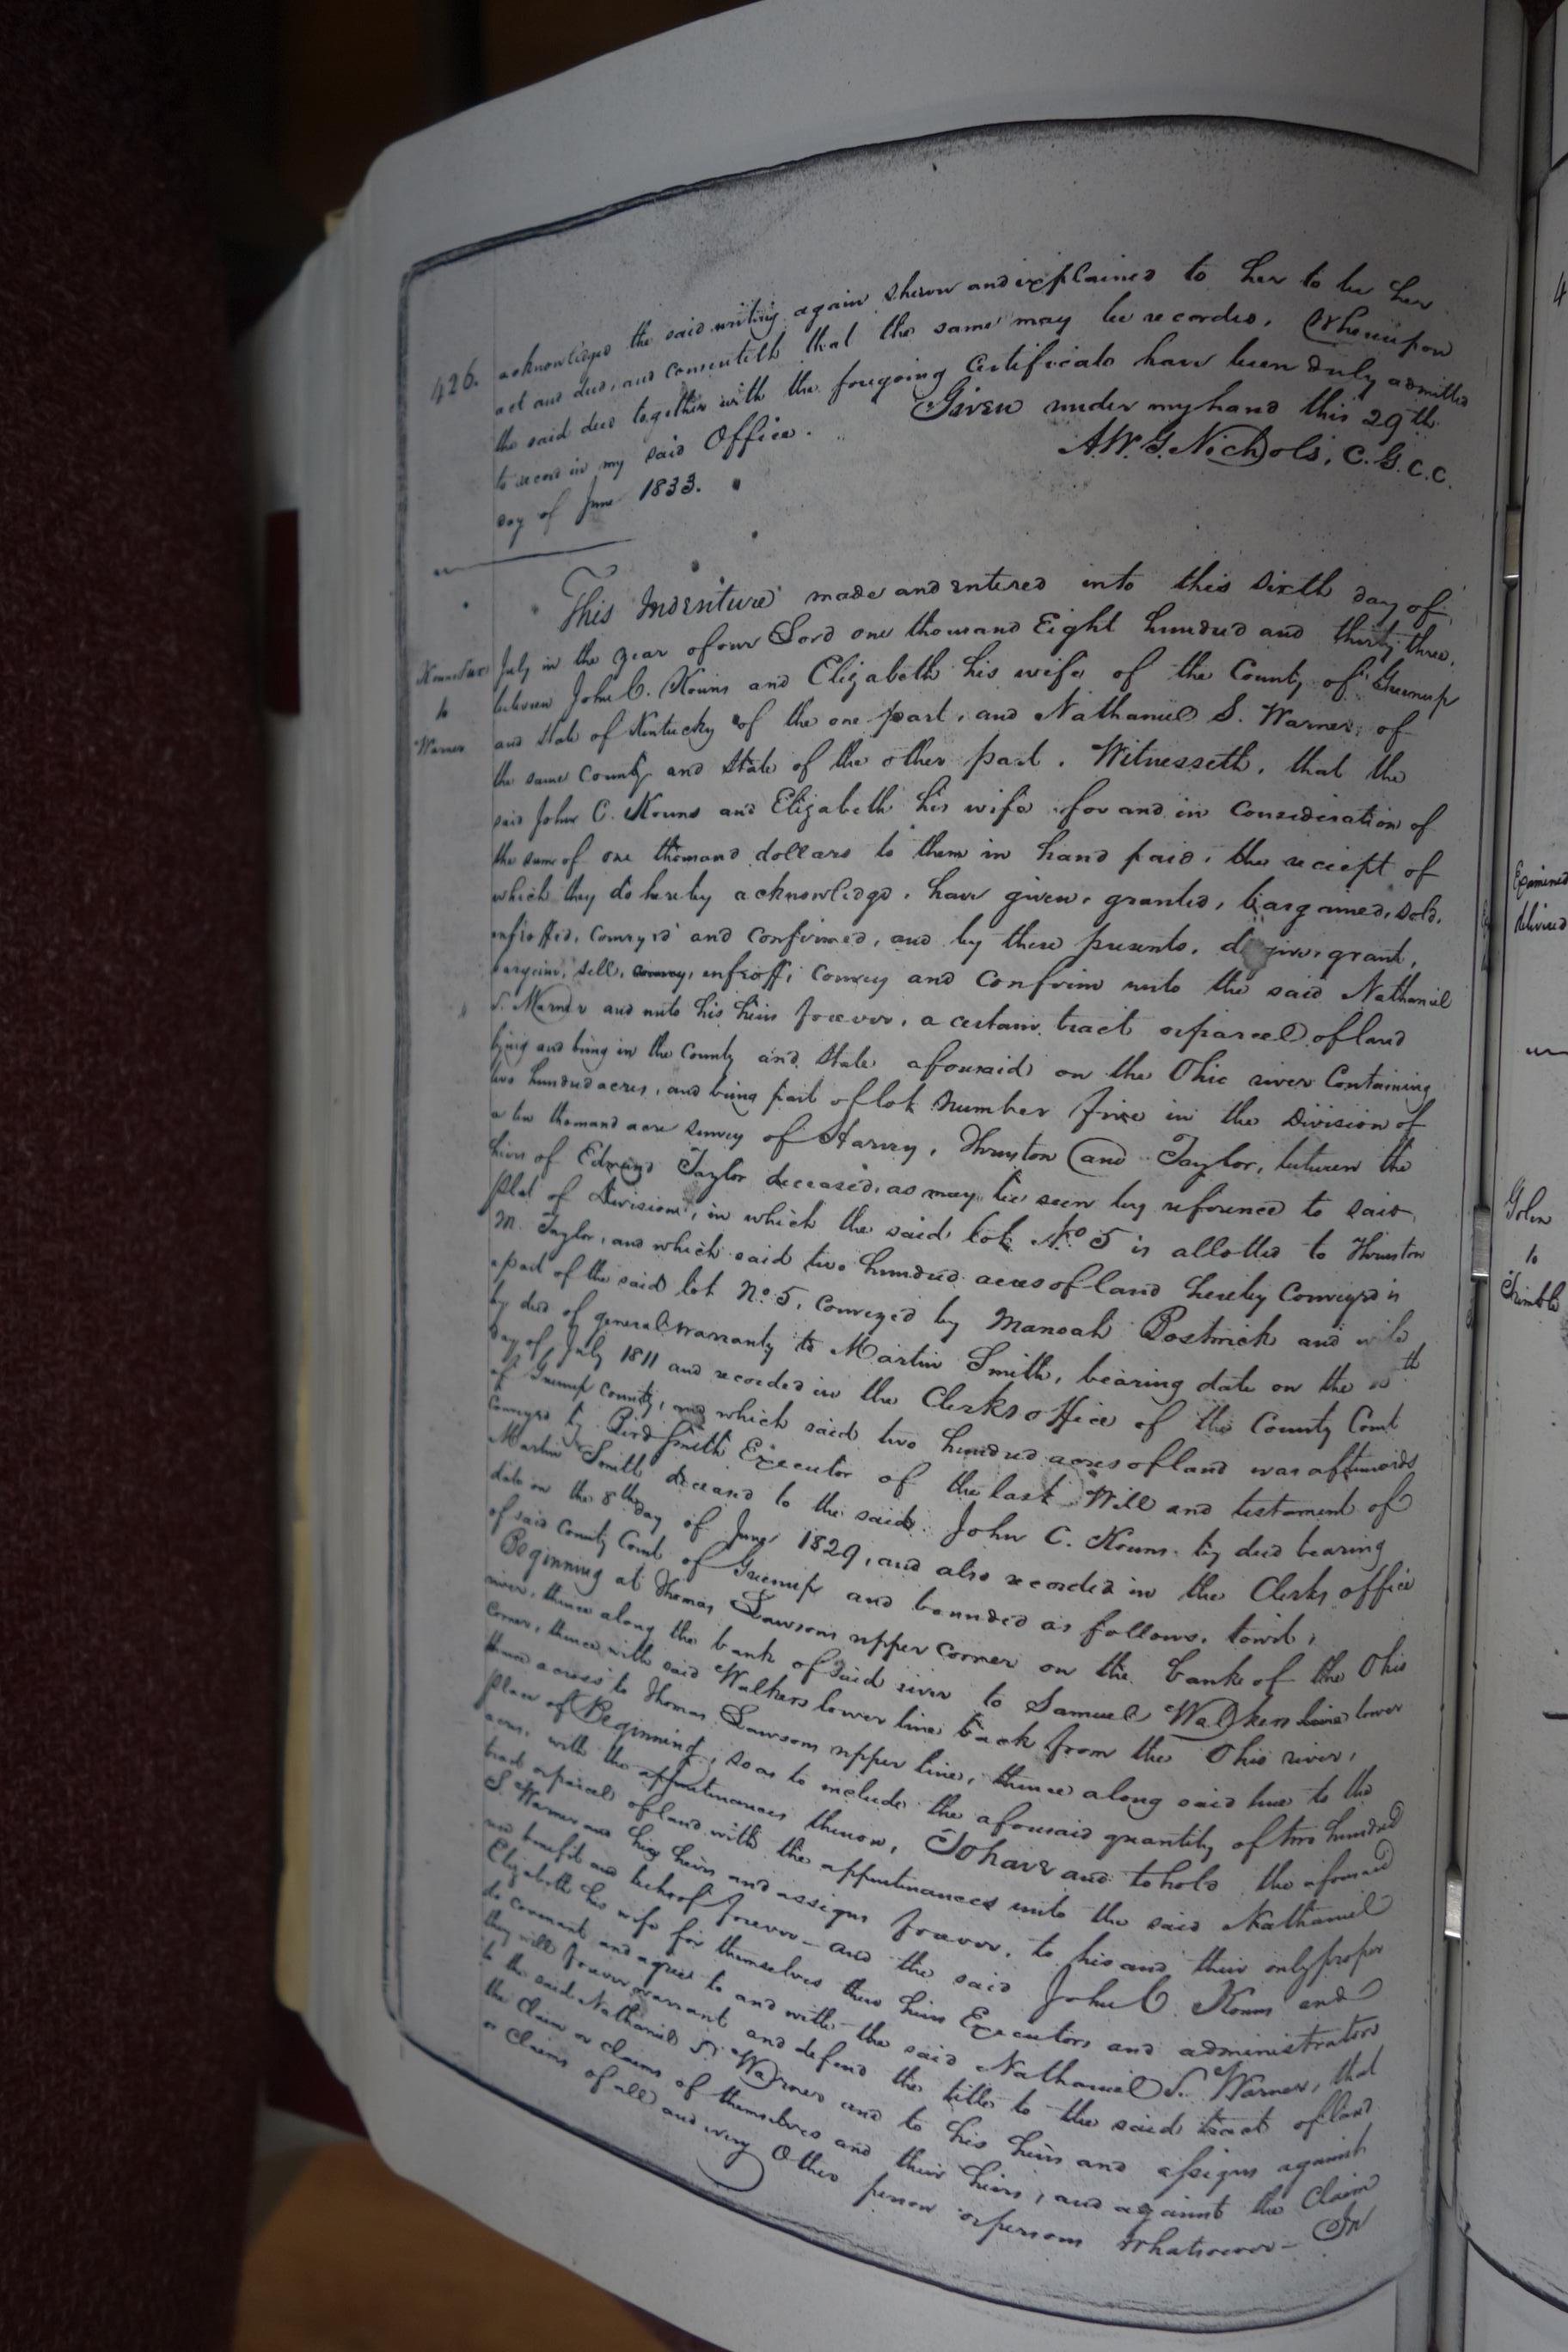 426.
acknowledged the said writing again shewn and explained to her to be her
act and deed, and consenteth that the same may be recorded, Whereupon
the said deed together with the foregoing Certificate have been duly admitted
to record in my said Office. Given under my hand this 29th
day of June 1833.
A.W.G. Nichols, C.G.C.C.
Kouns &ux
to
Warner
This Indenture made and entered into this sixth day of
July in the year of our Lord one thousand Eight hundred and thirty three,
between John C. Kouns and Elizabeth his wife of the County of Greenup
and State of Kentucky of the one part, and Nathaniel S. Warner, of
the same County and State of the other part. Witnesseth, that the
said John C. Kouns and Elizabeth his wife for and in Consideration of
the sum of one thousand dollars to them in hand paid, the reciept of
which they do hereby acknowledge, have given, granted, bargained, sold,
enfeoffed, conveyed and confirmed, and by these presents, do give, grant,
bargain, sell, convey, enfeoff, Convey and Confirm unto the said Nathaniel
S. Warner and unto his heirs forever, a certain tract or parcel of land
lying and being in the County and State aforesaid on the Ohio river Containing
two hundred acres, and being part of lot number five in the Division of
a ten thousand acre survey of Harvey, Thruston and Taylor, between the
heirs of Edmund Taylor deceased, as may be seen by reference to said
plat of Division, in which the said lot No 5 is allotted to Thruston
M. Taylor, and which said two hundred acres of land hereby Conveyed is
a part of the said lot No. 5, conveyed by Manoah Bostwick and wife
by deed of general warranty to Martin Smith, bearing date on the th
day of July 1811 and recorded in the Clerks office of the County Court
of Greenup County, and which said two hundred acres of land was afterwards
conveyed by Bird Smith Executor of the last Will and testament of
Martin Smith deceased to the said John C. Kouns by deed bearing
date on the 8th day of June 1829, and also recorded in the Clerks office
of said County Court of Greenup and bounded as follows, towit,
Beginning at Thomas Lawsons upper corner on the bank of the Ohio
river, thence along the bank of said river to Samuel Walkers line lower
corner, thence with said Walkers lower line back from the Ohio river,
thence across to Thomas Lawsons upper line, thence along said line to the
place of Beginning, so as to include the aforesaid quantity of two hundred
acres, with the appurtenances thereon, To have and to hold the aforesaid
tract or parcel of land with the appurtenances unto the said Nathaniel
S. Warner and his heirs and assigns forever, to his and their only proper
use benefit and behoof forever - and the said John C. Kouns and
Elizabeth his wife for themselves their heirs Executors and administrators
do covenant and agree to and with the said Nathaniel S. Warner, that
they will forever warrant and defend the title to the said tract of land
to the said Nathaniel S. Warner and to his heirs and assigns against
the Claim or claims of themselves and their heirs, and against the Claim
or Claims of all and every Other person or persons Whatsoever - In
Examined
delivered
to